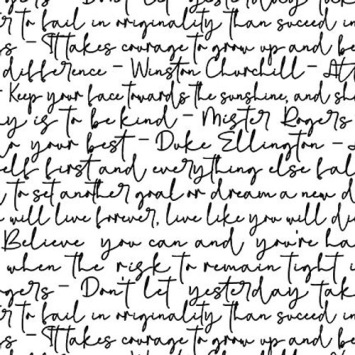 gers - Don't let yesterday tak
r to fail in originality than succeed in
gs - It takes courage to grow up and be
difference - Winston Churchill - Att
Keep your face towards the sunshine, and sh
y is to be kind - Mister Rogers
do your best - Duke Ellington -
elf first and everything else fal
to set another goal or dream a new d
will live forever, live like you will di
Believe you can and you're ha
when the risk to remain tight i
ogers - Don't let yesterday tak
r to fail in originality than succeed in
gs - It takes courage to grow up and be
difference - Winston Churchill - Att